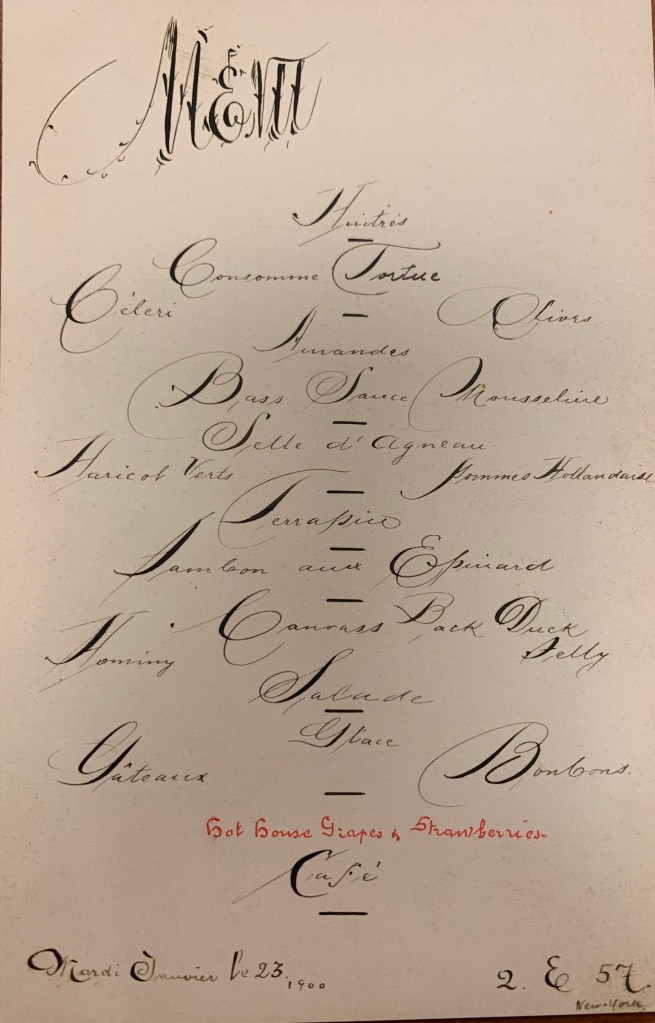 Menu
Huîtres
Consomme Tortue
Céleri Olives
Amandes
Bass Sauce Mousseline
Selle d'Agneau
Haricot Verts Pommes Hollandaise
Terrapin
Jambon aux Epinard
Canvass Back Duck
Hominy Jelly
Salade
Glace
Gâteaux Bonbons.
hot house Grapes & Strawberries
Café
Mardi Janvier le 23, 1900 2. E 57.
New-York.